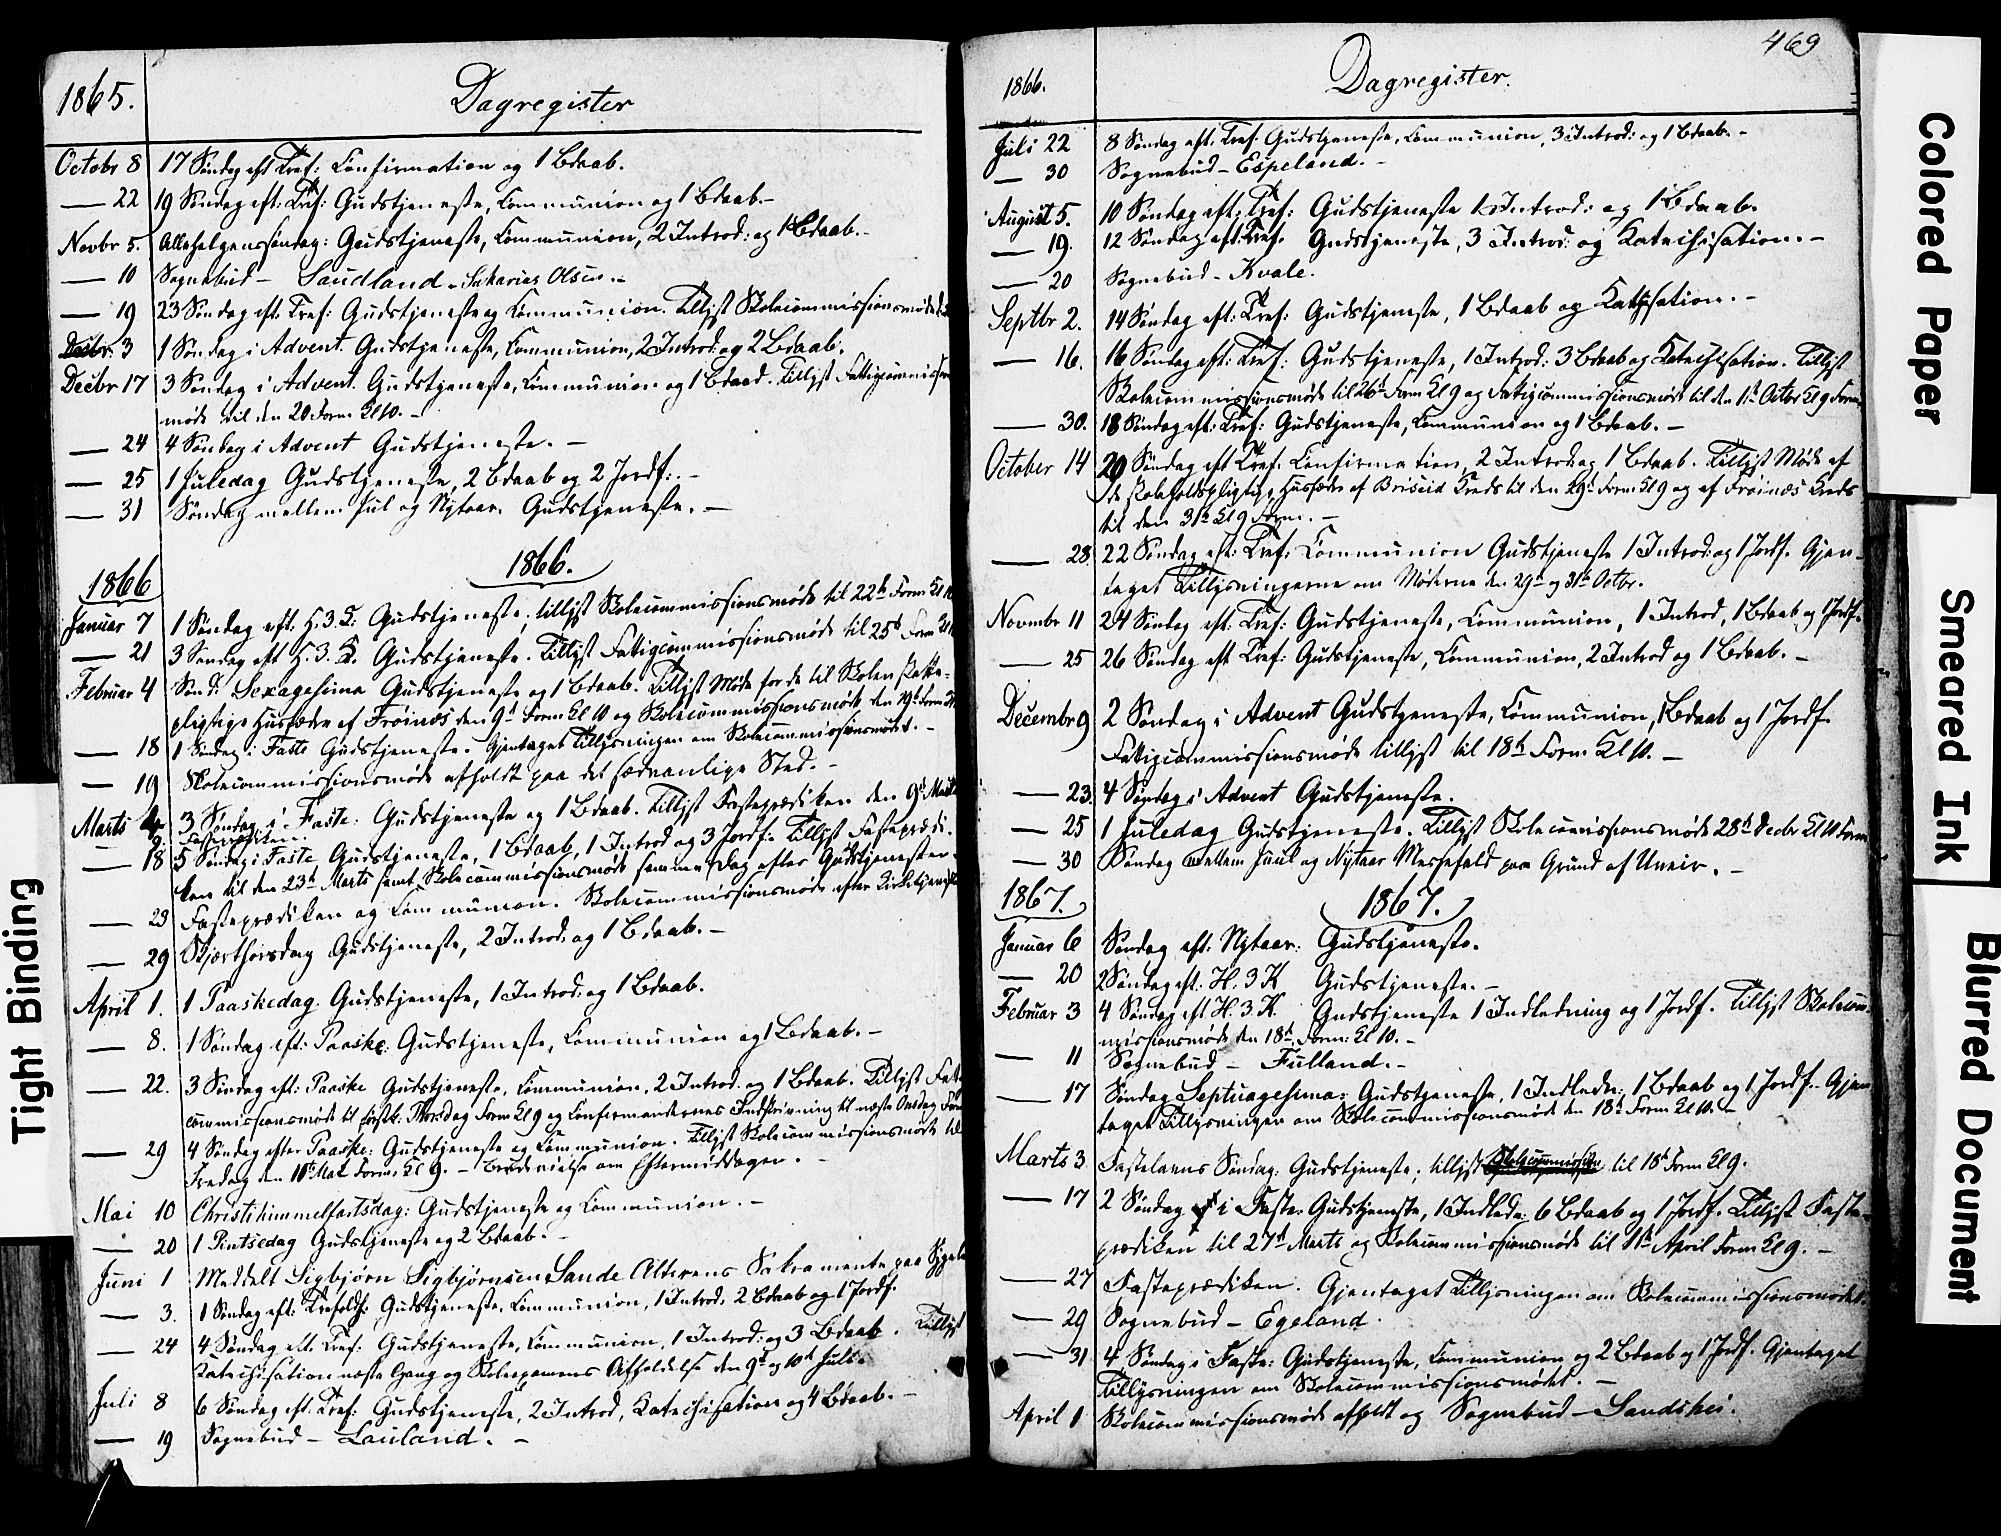 1865.
Dagregister
Octobr 8 17 Søndag eft Tref: Confirmation og 1 Bdaab.
— 22 19 Søndag eft: Tref: Gudstjeneste, Communion og 1 Bdaab. –
Novbr 5. Allehelgenssøndag: Gudstjeneste, Communion, 2 Introd: og 1 Bdaab. –
— 10 Sognebud – Saudland – Sakarias Olsen. –
— 19 23 Søndag eft. Tref: Gudstjeneste og Communion. Tillyst Skolecommissionsmøde
Decbr. 3 1 Søndag i Advent. Gudstjeneste, Communion, 2 Introd: og 2 Bdaab.
Decbr 17 3 Søndag i Advent. Gudstjeneste, Communion og 1 Bdaab. Tillyst Fattigcommissions
møde til den 20 Form. Kl 10. –
— 24 4 Søndag i Advent Gudstjeneste. –
— 25 1 Juledag Gudstjeneste, 2 Bdaab og 2 Jordf: –
— 31 Søndag mellem Jul og Nytaar. Gudstjeneste. –
1866 1866.
Januar 7 1 Søndag eft. H. 3. K: Gudstjeneste; tillyst Skolecommissionsmøde til 22d Form Kl 10
— 21 3 Søndag eft H. 3. K. Gudstjeneste. Tillyst Fattigcommissionsmøde til 25d Form Kl
Februar 4 Sønd: Sexagesima Gudstjeneste og 1 Bdaab. Tillyst Møde for de til Skolen skatte-
pligtige Husfædre af Frøinæs den 9d Form Kl 10 og Skolecommissionsmøde den 19d Form Kl
— 18 1 Søndag i Faste Gudstjeneste. Gjentaget Tillysningen om Skolecommissionsmødet. –
— 19 Skolecommissionsmøde afholdt paa det sædvanlige Sted. –
Marts 4 3 Søndag i Faste: Gudstjeneste og 1 Bdaab. Tillyst Fasteprædiken den 9d Marts
9. Fasteprædiken.
— 18 5 Søndag i Faste, Gudstjeneste, 1 Bdaab, 1 Introd og 3 Jordf: Tillyst Fasteprædi-
ken til den 23d Marts samt Skolecommissionsmøde samme Dag efter Gudstjenesten.
— 23 Fasteprædiken og Communion. Skolecommissionsmøde efter Kirketjeneste
— 29 Skjærthorsdag Gudstjeneste, 2 Introd: og 1 Bdaab. –
April 1. 1 Paaskedag. Gudstjeneste, 1 Introd: og 1 Bdaab.
— 8. 1 Søndag eft: Paaske: Gudstjeneste, Communion og 1 Bdaab. –
— 22. 3 Søndag eft: Paaske Gudstjeneste, Communion, 2 Introd: og 1 Bdaab. Tillyst Fattig
commissionsmøde til førstk. Thorsdag Form Kl 9 og Confirmandernes Indskrivning til næste Onsdag Form
— 29 4 Søndag efter Paaske: Gudstjeneste og Communion. Tillyst Skolecommissionsmøde til
Fredag den 10de Mai Form: Kl 9. – Brudevielse om Eftermiddagen. –
Mai 10 Christihimmelfartsdag: Gudstjeneste og Communion. –
— 20 1 Pintsedag Gudstjeneste og 2 Bdaab. –
Juni 1 Meddelt Sigbjørn Sigbjørnsen Sande Alterens Sakramente paa Sygele
— 3. 1 Søndag eft: Trefoldh: Gudstjeneste, Communion, 1 Introd, 2 Bdaab og 1 Jordf.
— 24 4 Søndag eft. Tref: Gudstjeneste, Communion, 1 Introd: og 3 Bdaab. Tillyst
Katechisation næste Gang og Skoleexamens Afholdelse den 9d og 10d Juli.
Juli 8 6 Søndag eft. Tref: Gudstjeneste, 2 Introd, Katechisation og 4 Bdaab. –
— 19 Sognebud – Lauland. –
469
1866.
Dagregister.
Juli 22 8 Søndag eft. Tref. Gudstjeneste, Communion, 3 Introd: og 1 Bdaab. –
— 30 Sognebud – Espeland. –
August 5. 10 Søndag eft: Tref: Gudstjeneste 1 Introd: og 1 Bdaab.
— 19. 12 Søndag eft: Tref. Gudstjeneste, 3 Introd: og Katechisation. –
— 20 Sognebud – Kvale.
Septbr 2. 14 Søndag eft: Tref: Gudstjeneste, 1 Bdaab og Kathisation. –
— 16. 16 Søndag eft: Tref: Gudstjeneste, 1 Introd: 3 Bdaab og Katechisation. Tillyst
Skolecommissionsmøde til 26d Form Kl 9 og Fattigcommissionsmøde til den 11te Octbr Kl 9 Form.
— 30. 18 Søndag eft: Tref: Gudstjeneste, Communion og 1 Bdaab. –
October 14 20 Søndag eft Tref. Confirmation, 2 Introd: og 1 Bdaab. Tillyst Møde af
de skoleholdspligtige Husfædre af Briseid Kreds til den 29d Form Kl 9 og af Frøinæs Kreds
til den 31te Kl 9 Form. –
— 28 22 Søndag eft: Tref: Communion Gudstjeneste 1 Introd: og 1 Jordf. Gjen-
taget Tillysningerne om Møderne den 29de og 31te Octbr.
Novmbr 11 24 Søndag eft. Tref: Gudstjeneste, Communion, 1 Introd, 1 Bdaab og 1 Jordf.
— 25 26 Søndag eft Tref: Gudstjeneste, Communion, 2 Introd og 1 Bdaab. –
Decembr 9 2 Søndag i Advent Gudstjeneste, Communion, 1 Bdaab og 1 Jordf.
Fattigcommissionsmøde tillyst til 18de Form Kl 10. –
— 23. 4 Søndag i Advent Gudstjeneste.
— 25 1 Juledag Gudstjeneste. Tillyst Skolecommissionsmøde 28d Decbr Kl 10 Form
— 30 Søndag mellem Juul og Nytaar Messefald paa Grund af Uveir. –
1867. 1867.
Januar 6 Søndag eft. Nytaar: Gudstjeneste.
— 20 2 Søndag eft. H. 3 K Gudstjeneste. –
Februar 3 4 Søndag eft H. 3. K. Gudstjeneste 1 Indledning og 1 Jordf. Tillyst Skolecom-
missionsmøde den 18de Form: Kl 10. –
— 11 Sognebud – Fulland. –
— 17 Søndag Septuagesima: Gudstjeneste, 1 Indledn: 1 Bdaab og 1 Jordf. Gjen-
taget Tillysningen om Skolecommissionsmøde den 18de Form Kl 10. –
Marts 3 Fastelavns Søndag: Gudstjeneste; tillyst Skolecommission til 18d Form Kl 9.
— 17 2 Søndag i Faste: Gudstjeneste, 1 Indledn: 6 Bdaab og 1 Jordf. Tillyst Faste-
prædiken til 27d Marts og Skolecommissionsmøde til 1ste April Form Kl 9. –
— 27 Fasteprædiken. Gjentaget Tillysningen om Skolecommissionsmødet.
— 29 Sognebud – Egeland.
— 31 4 Søndag i Faste: Gudstjeneste, Communion og 2 Bdaab og 1 Jordf. Gjentaget
Tillysningen om Skolecommissionsmødet. –
April 1 Skolecommissionsmøde afholdt og Sognebud – Sandshei.
Tight Binding
Colored Paper
Smeared Ink
Blurred Document